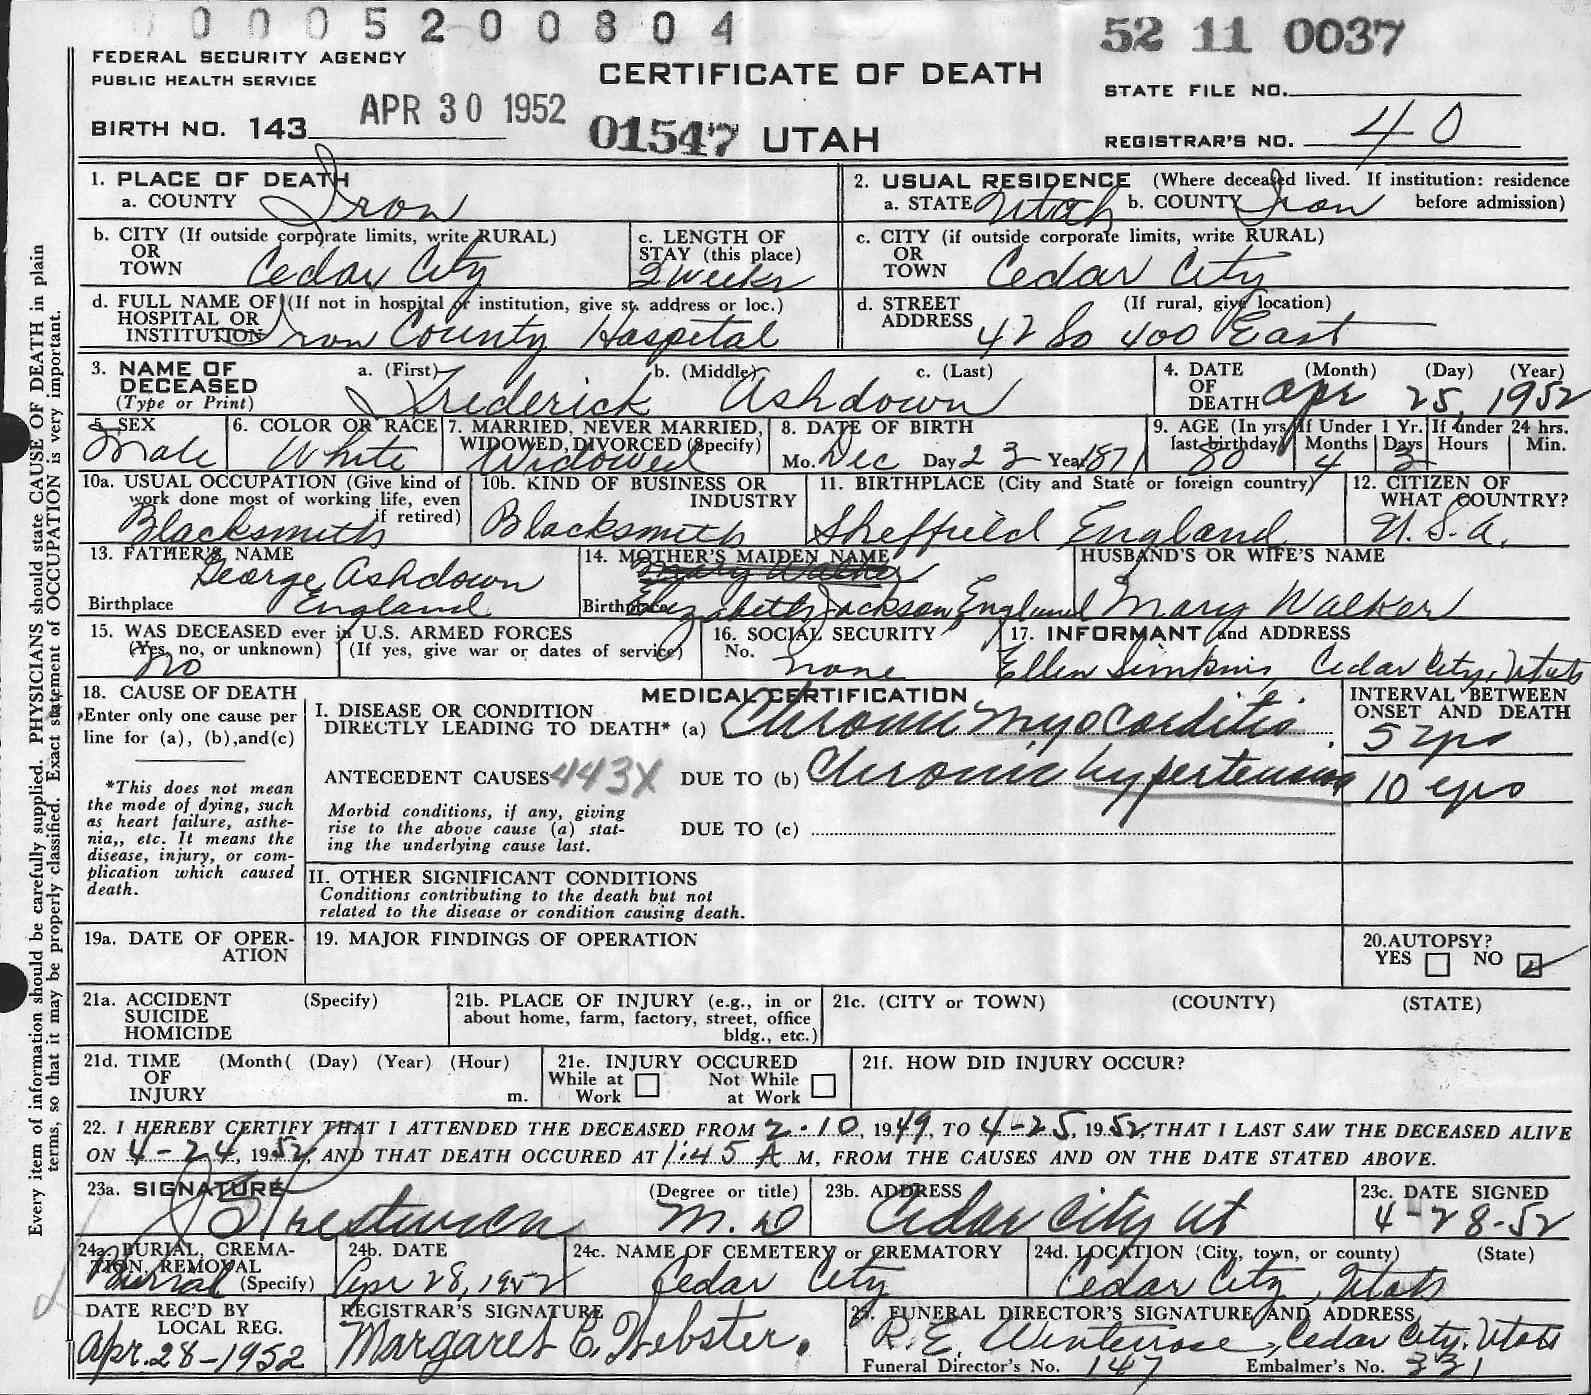 0 0 0 5 2 0 0 8 0 4
52 11 0037
FEDERAL SECURITY AGENCY
PUBLIC HEALTH SERVICE
CERTIFICATE OF DEATH
STATE FILE NO.
BIRTH NO. 143
APR 30 1952
01547 UTAH
REGISTRAR'S NO. 40
Every item of information should be carefully supplied. PHYSICIANS should state CAUSE OF DEATH in plain
terms, so that it may be properly classified. Exact statement of OCCUPATION is very important.
1. PLACE OF DEATH
a. COUNTY Iron
2. USUAL RESIDENCE (Where deceased lived. If institution: residence
a. STATE Utah b. COUNTY Iron before admission)
b. CITY (If outside corporate limits, write RURAL)
OR
TOWN Cedar City
c. LENGTH OF
STAY (this place)
2 weeks
c. CITY (if outside corporate limits, write RURAL)
OR
TOWN Cedar City
d. FULL NAME OF (If not in hospital or institution, give st. address or loc.)
HOSPITAL OR
INSTITUTION Iron County Hospital
d. STREET (If rural, give location)
ADDRESS 42 So 400 East
3. NAME OF a. (First) b. (Middle) c. (Last)
DECEASED
(Type or Print) Frederick Ashdown
4. DATE (Month) (Day) (Year)
OF
DEATH Apr 25, 1952
5. SEX
Male
6. COLOR OR RACE
White
7. MARRIED, NEVER MARRIED,
WIDOWED, DIVORCED (Specify)
Widowed
8. DATE OF BIRTH
Mo. Dec Day 23 Year 1871
9. AGE (In yrs. If Under 1 Yr. If under 24 hrs.
last birthday) Months Days Hours Min.
80 4 3
10a. USUAL OCCUPATION (Give kind of
work done most of working life, even
if retired)
Blacksmith
10b. KIND OF BUSINESS OR
INDUSTRY
Blacksmith
11. BIRTHPLACE (City and State or foreign country)
Sheffield England
12. CITIZEN OF
WHAT COUNTRY?
U.S.A.
13. FATHER'S NAME
George Ashdown
Birthplace England
14. MOTHER'S MAIDEN NAME
Mary Walker
Birthplace Elizabeth Jackson, England
HUSBAND'S OR WIFE'S NAME
Mary Walker
15. WAS DECEASED ever in U.S. ARMED FORCES
(Yes, no, or unknown) (If yes, give war or dates of service)
No
16. SOCIAL SECURITY
No. none
17. INFORMANT and ADDRESS
Ellen Simkins, Cedar City, Utah
18. CAUSE OF DEATH
Enter only one cause per
line for (a), (b), and (c)
*This does not mean
the mode of dying, such
as heart failure, asthe-
nia,, etc. It means the
disease, injury, or com-
plication which caused
death.
MEDICAL CERTIFICATION
INTERVAL BETWEEN
ONSET AND DEATH
I. DISEASE OR CONDITION
DIRECTLY LEADING TO DEATH* (a) Chronic myocarditis 5 yrs
ANTECEDENT CAUSES 443X DUE TO (b) Chronic hypertension 10 yrs
Morbid conditions, if any, giving
rise to the above cause (a) stat-
ing the underlying cause last.
DUE TO (c)
II. OTHER SIGNIFICANT CONDITIONS
Conditions contributing to the death but not
related to the disease or condition causing death.
19a. DATE OF OPER-
ATION
19. MAJOR FINDINGS OF OPERATION
20. AUTOPSY?
YES NO
21a. ACCIDENT (Specify)
SUICIDE
HOMICIDE
21b. PLACE OF INJURY (e.g., in or
about home, farm, factory, street, office
bldg., etc.)
21c. (CITY or TOWN) (COUNTY) (STATE)
21d. TIME (Month( (Day) (Year) (Hour)
OF
INJURY m.
21e. INJURY OCCURED
While at Not While
Work at Work
21f. HOW DID INJURY OCCUR?
22. I HEREBY CERTIFY THAT I ATTENDED THE DECEASED FROM 2-10, 1949, TO 4-25, 1952, THAT I LAST SAW THE DECEASED ALIVE
ON 4-24, 1952, AND THAT DEATH OCCURED AT 1:45 A M, FROM THE CAUSES AND ON THE DATE STATED ABOVE.
23a. SIGNATURE (Degree or title)
Prestwich M.D
23b. ADDRESS
Cedar City Ut
23c. DATE SIGNED
4-28-52
24a. BURIAL, CREMA-
TION, REMOVAL
Burial (Specify)
24b. DATE
Apr 28, 1952
24c. NAME OF CEMETERY or CREMATORY
Cedar City
24d. LOCATION (City, town, or county) (State)
Cedar City, Utah
DATE REC'D BY
LOCAL REG.
Apr. 28-1952
REGISTRAR'S SIGNATURE
Margaret C. Webster.
25. FUNERAL DIRECTOR'S SIGNATURE AND ADDRESS
R. E. Winterose, Cedar City, Utah
Funeral Director's No. 147 Embalmer's No. 331